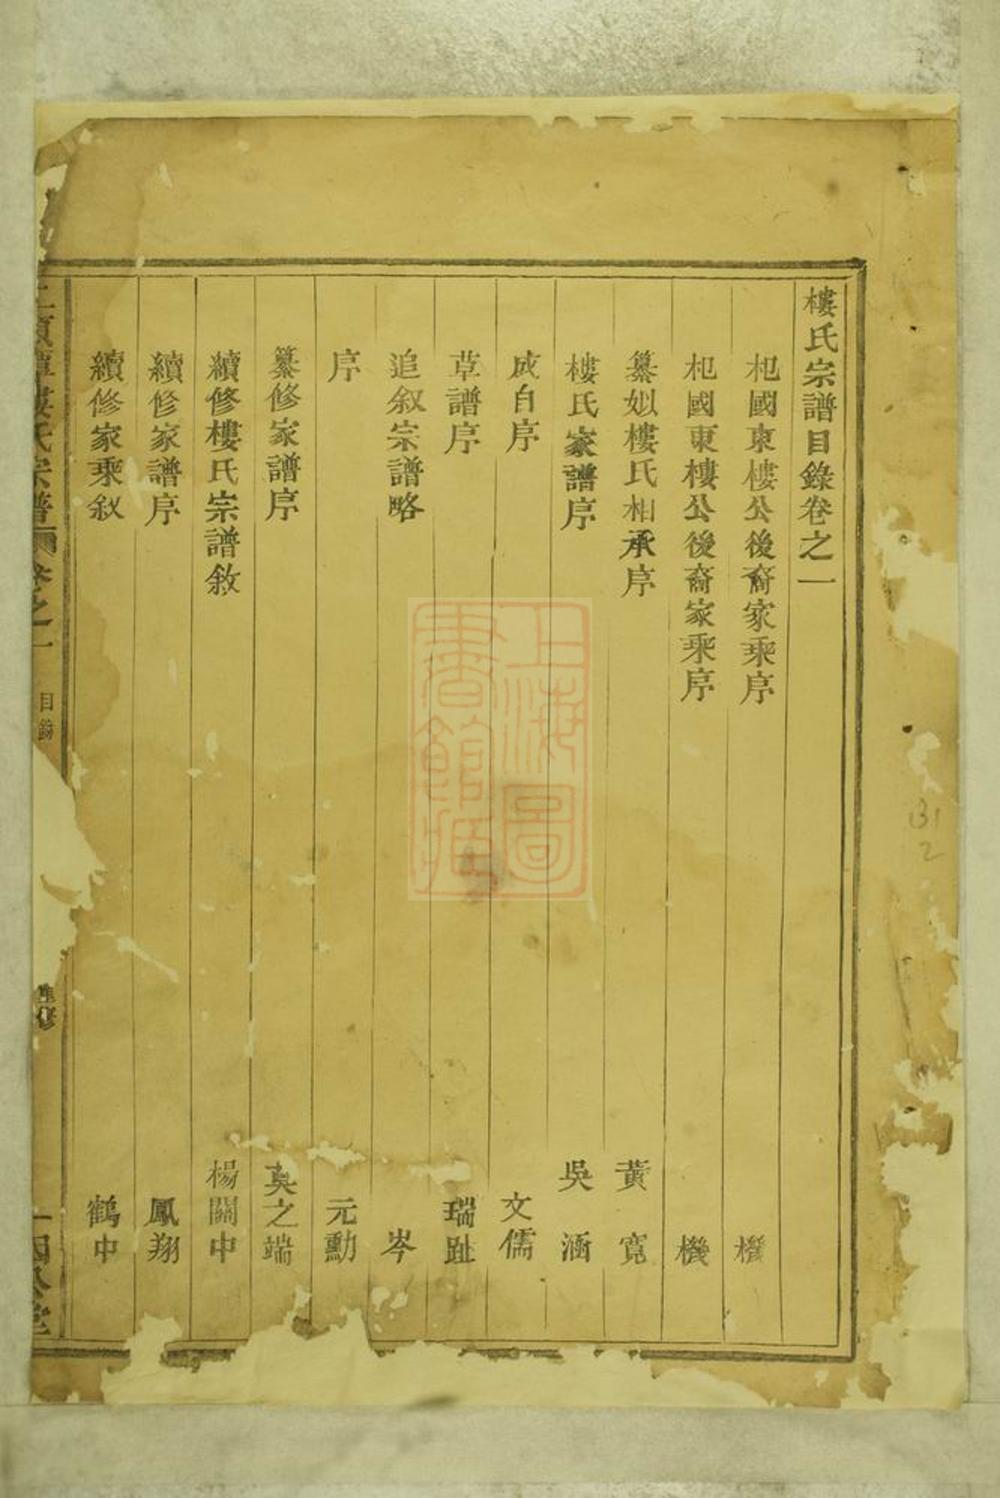 樓氏宗譜目錄卷之一
杞國東樓公後裔家乘序 機
杞國東樓公後裔家乘序 機
纂姒樓氏相承序 黃寬
樓氏家譜序 吳涵
成自序 文儒
草譜序 瑞趾
追叙宗譜略 岑
序 元勳
纂修家譜序 吳之端
續修樓氏宗譜敘 楊關中
續修家譜序 鳳翔
續修家乘叙 鶴中
樓氏宗譜 卷之一 目錄 重修
上海圖書館藏